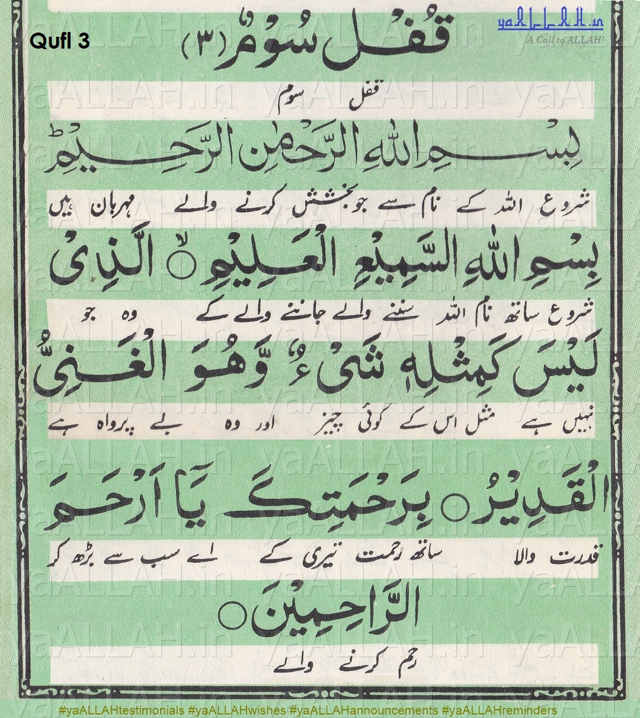 Qufl 3
قُفْل سُوْمْ (۳)
yaALLAH.in
A Call to ALLAH!
قفل سوم
بِسْمِ اللهِ الرَّحْمٰنِ الرَّحِيْمِ ط
شروع اللہ کے نام سے جو بخشش کرنے والے مہربان ہیں
بِسْمِ اللهِ السَّمِيْعِ الْعَلِيْمِ ○ لا الَّذِىْ
شروع ساتھ نام اللہ سننے والے جاننے والے کے وہ جو
لَيْسَ كَمِثْلِهٖ شَىْءٌ وَّهُوَ الْغَنِىُّ
نہیں ہے مثل اس کے کوئی چیز اور وہ بے پرواہ ہے
الْقَدِيْرُ ○ بِرَحْمَتِكَ يَآ اَرْحَمَ
قدرت والا ساتھ رحمت تیری کے اے سب سے بڑھ کر
الرَّاحِمِيْنَ ○
رحم کرنے والے
#yaALLAHtestimonials #yaALLAHwishes #yaALLAHannouncements #yaALLAHreminders